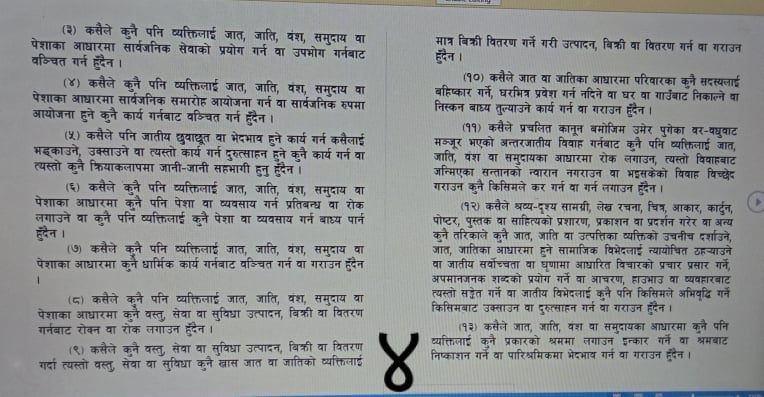 (३) कसैले कुनै पनि व्यक्तिलाई जात, जाति, वंश, समुदाय वा
पेशाका आधारमा सार्वजनिक सेवाको प्रयोग गर्न वा उपभोग गर्नबाट
वञ्चित गर्न हुँदैन ।
(४) कसैले कुनै पनि व्यक्तिलाई जात, जाति, वंश, समुदाय वा
पेशाका आधारमा सार्वजनिक समारोह आयोजना गर्न वा सार्वजनिक रुपमा
आयोजना हुने कुनै कार्य गर्नबाट वञ्चित गर्न हुँदैन ।
(५) कसैले कुनै पनि जातीय छुवाछूत वा भेदभाव हुने कार्य गर्न कसैलाई
भड्काउने, उक्साउने वा त्यस्तो कार्य गर्न दुरुत्साहन हुने कुनै कार्य गर्न वा
त्यस्तो कुनै क्रियाकलापमा जानी-जानी सहभागी हुनु हुँदैन ।
(६) कसैले कुनै पनि व्यक्तिलाई जात, जाति, वंश, समुदाय वा
पेशाका आधारमा कुनै पनि पेशा वा व्यवसाय गर्न प्रतिबन्ध वा रोक
लगाउने वा कुनै पनि व्यक्तिलाई कुनै पेशा वा व्यवसाय गर्न बाध्य पार्न
हुँदैन ।
(७) कसैले कुनै पनि व्यक्तिलाई जात, जाति, वंश, समुदाय वा
पेशाका आधारमा कुनै धार्मिक कार्य गर्नबाट वञ्चित गर्न वा गराउन हुँदैन
।
(८) कसैले कुनै पनि व्यक्तिलाई जात, जाति, वंश, समुदाय वा
पेशाका आधारमा कुनै वस्तु, सेवा वा सुविधा उत्पादन, बिक्री वा वितरण
गर्नबाट रोक्न वा रोक लगाउन हुँदैन ।
(९) कसैले कुनै वस्तु, सेवा वा सुविधा उत्पादन, बिक्री वा वितरण
गर्दा त्यस्तो वस्तु, सेवा वा सुविधा कुनै खास जात वा जातिको व्यक्तिलाई
मात्र बिक्री वितरण गर्ने गरी उत्पादन, बिक्री वा वितरण गर्न वा गराउन
हुँदैन ।
(१०) कसैले जात वा जातिका आधारमा परिवारका कुनै सदस्यलाई
बहिष्कार गर्ने, घरभित्र प्रवेश गर्न नदिने वा घर वा गाउँबाट निकाल्ने वा
निस्कन बाध्य तुल्याउने कार्य गर्न वा गराउन हुँदैन ।
(११) कसैले प्रचलित कानून बमोजिम उमेर पुगेका वर-वधुबाट
मञ्जूर भएको अन्तरजातीय विवाह गर्नबाट कुनै पनि व्यक्तिलाई जात,
जाति, वंश वा समुदायका आधारमा रोक लगाउन, त्यस्तो विवाहबाट
जन्मिएका सन्तानको न्वारान नगराउन वा भइसकेको विवाह विच्छेद
गराउन कुनै किसिमले कर गर्न वा गर्न लगाउन हुँदैन ।
(१२) कसैले श्रव्य-दृश्य सामग्री, लेख रचना, चित्र, आकार, कार्टुन,
पोष्टर, पुस्तक वा साहित्यको प्रशारण, प्रकाशन वा प्रदर्शन गरेर वा अन्य
कुनै तरिकाले कुनै जात, जाति वा उत्पत्तिका व्यक्तिको उचनीच दर्शाउने,
जात, जातिका आधारमा हुने सामाजिक विभेदलाई न्यायोचित ठहर्‍याउने
वा जातीय सर्वोच्चता वा घृणामा आधारित विचारको प्रचार प्रसार गर्ने,
अपमानजनक शब्दको प्रयोग गर्ने वा आचरण, हाउभाउ वा व्यवहारबाट
त्यस्तो सङ्केत गर्ने वा जातीय विभेदलाई कुनै पनि किसिमले अभिवृद्धि गर्ने
किसिमबाट उक्साउन वा दुरुत्साहन गर्न वा गराउन हुँदैन ।
(१३) कसैले जात, जाति, वंश वा समुदायका आधारमा कुनै पनि
व्यक्तिलाई कुनै प्रकारको श्रममा लगाउन इन्कार गर्ने वा श्रमबाट
निष्काशन गर्ने वा पारिश्रमिकमा भेदभाव गर्न वा गराउन हुँदैन ।
४